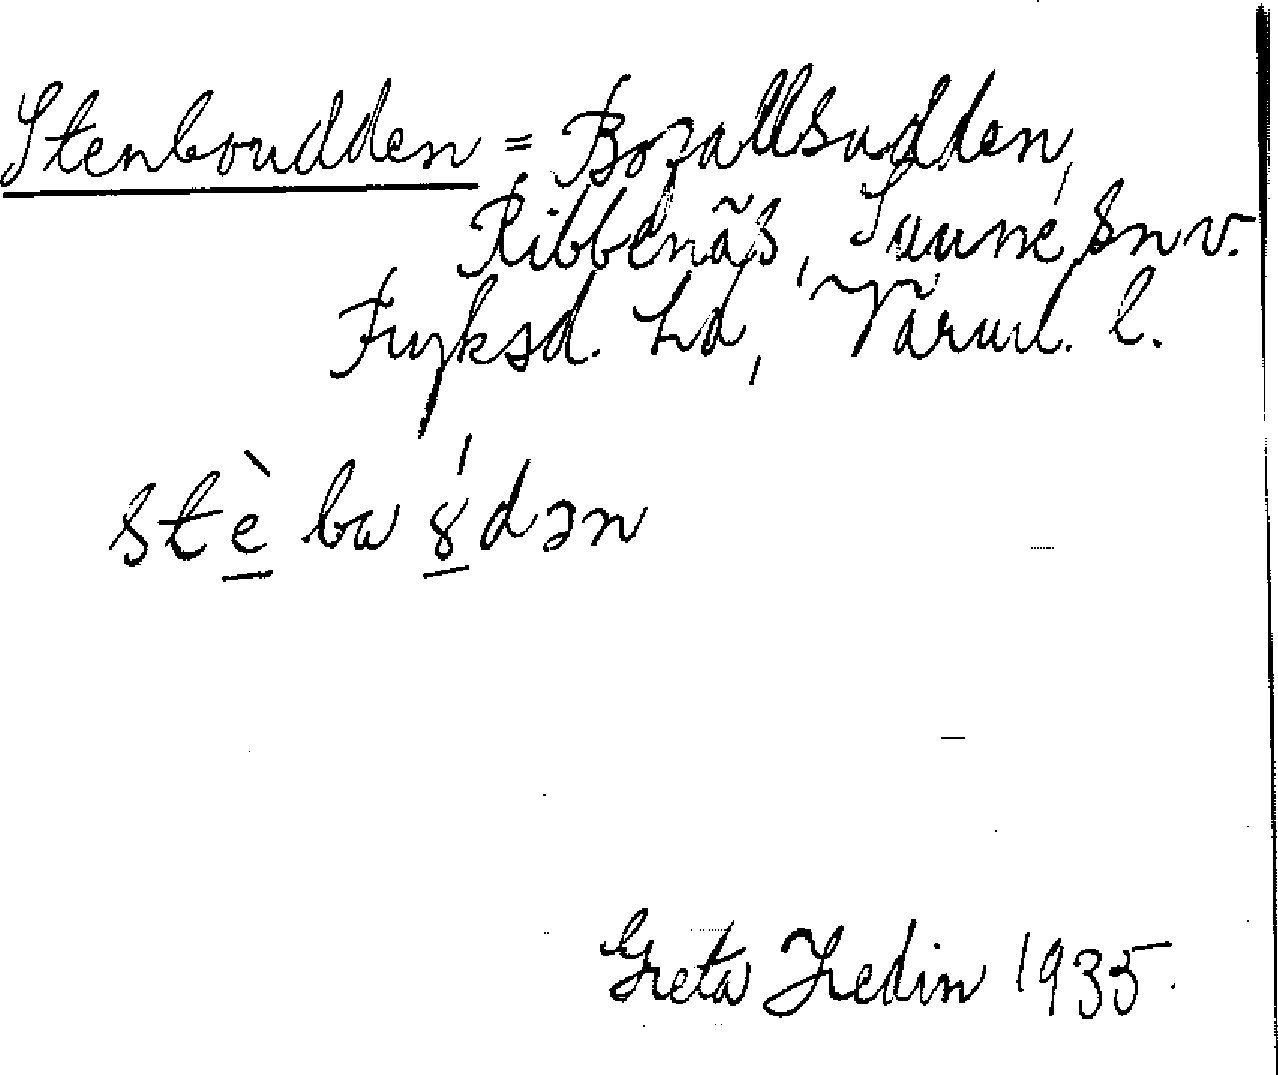 Stenboudden = Bozallsudden,
Ribbenäs, Sunne sn v.
Fryksd. hd, Värml. l.
stè ba ǘdən
Greta Hedin 1935.